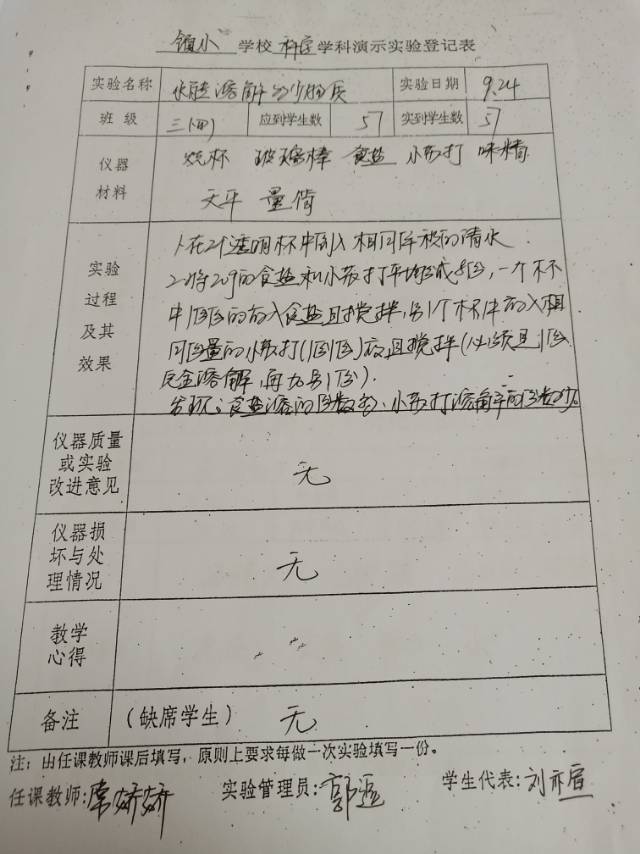 镇小 学校 科学 学科演示实验登记表
实验名称 水能溶解多少物质 实验日期 9.24
班级 三(四) 应到学生数 57 实到学生数 57
仪器材料 烧杯 玻璃棒 食盐 小苏打 味精
天平 量筒
实验过程及其效果
1.在2个透明杯中倒入相同体积的清水
2.将20g的食盐和小苏打平均分成8份,一个杯
中1份1份的放入食盐且搅拌,另1个杯中放入相
同分量的小苏打(1份1份)放且搅拌(必须是1份
完全溶解,再加另1份).
发现:食盐溶的份数多、小苏打溶解的份数少。
仪器质量或实验改进意见 无
仪器损坏与处理情况 无
教学心得
备注 (缺席学生) 无
注:由任课教师课后填写,原则上要求每做一次实验填写一份。
任课教师:常娇娇 实验管理员:郭 学生代表:刘亦